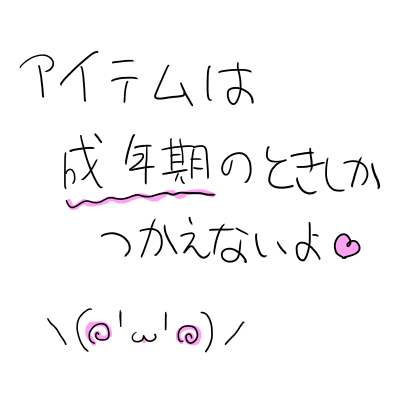 アイテムは
成年期のときしか
つかえないよ♥
\(๑'ω'๑)/